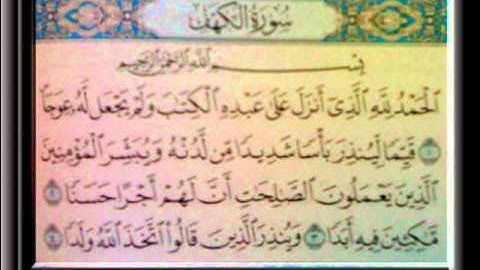 سُورَةُ الكَهْفِ
بِسْمِ ٱللَّهِ ٱلرَّحْمَٰنِ ٱلرَّحِيمِ
ٱلْحَمْدُ لِلَّهِ ٱلَّذِىٓ أَنزَلَ عَلَىٰ عَبْدِهِ ٱلْكِتَٰبَ وَلَمْ يَجْعَل لَّهُۥ عِوَجَا
١ قَيِّمًا لِّيُنذِرَ بَأْسًا شَدِيدًا مِّن لَّدُنْهُ وَيُبَشِّرَ ٱلْمُؤْمِنِينَ
ٱلَّذِينَ يَعْمَلُونَ ٱلصَّٰلِحَٰتِ أَنَّ لَهُمْ أَجْرًا حَسَنًا ٢
مَّٰكِثِينَ فِيهِ أَبَدًا ٣ وَيُنذِرَ ٱلَّذِينَ قَالُوا۟ ٱتَّخَذَ ٱللَّهُ وَلَدًا ٤